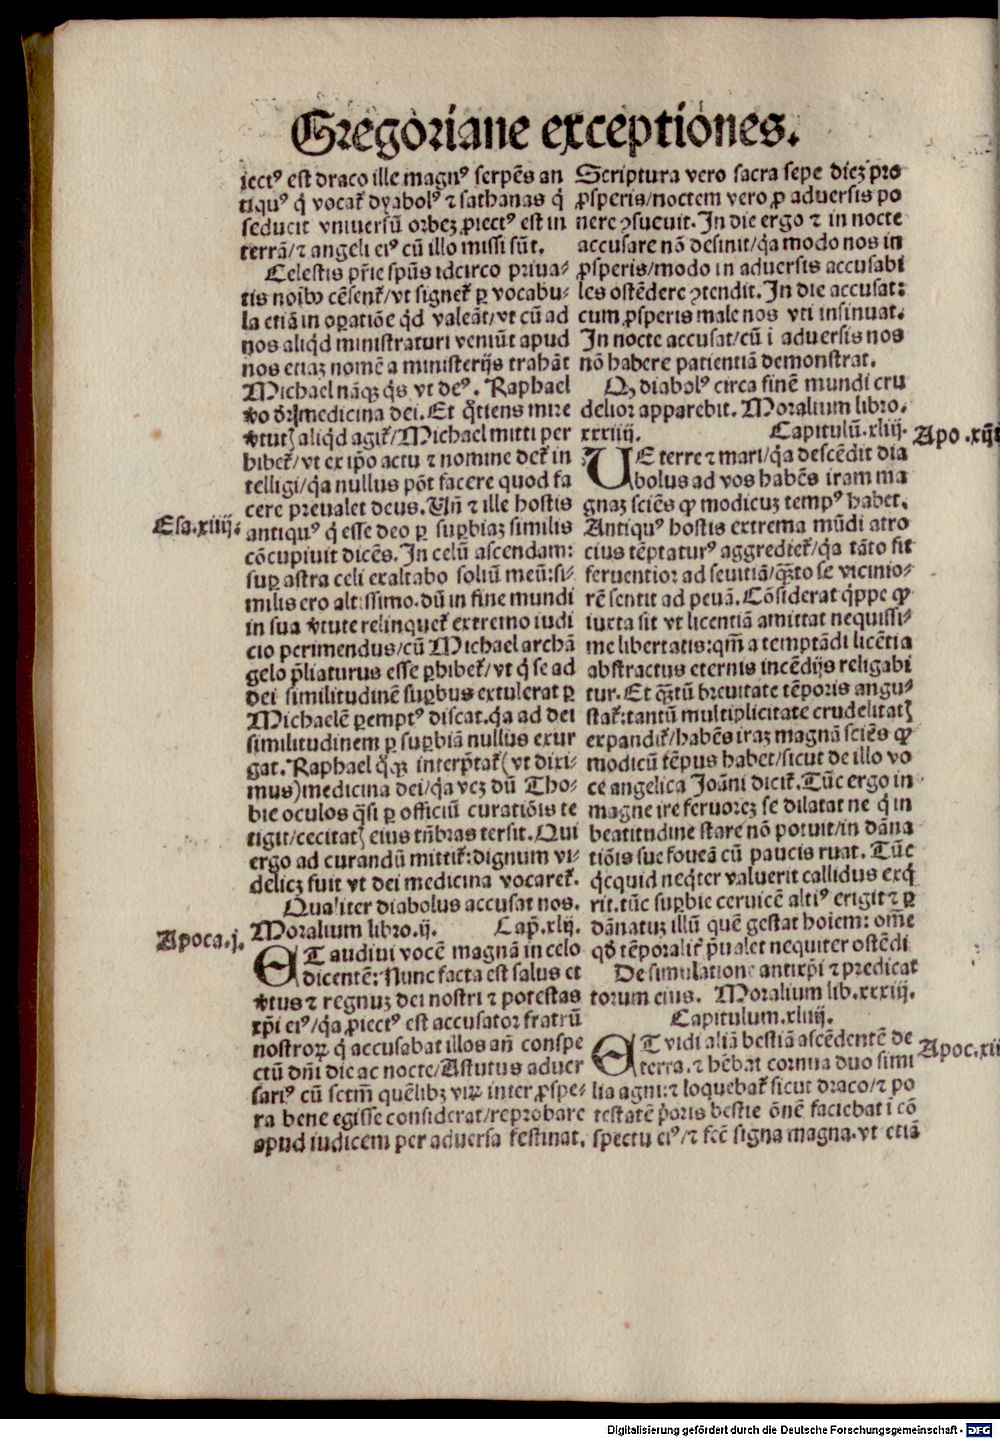 Gregoriane exceptiones.
iectꝰ est draco ille magnꝰ serpēs an
tiquꝰ q̇ vocat᷑ dyabolꝰ ⁊ sathanas q̇
seducit vniuersū orbeꝫ ꝓiectꝰ est in
terrā/⁊ angeli eiꝰ cū illo missi sūt.
Celestis pr̄ie spūs idcirco priua-
tis noībꝰ cēsent᷑/vt signet᷑ ꝑ vocabu-
la etiā in oꝑatiōe qḋ valeāt/vt cū ad
nos aliqḋ ministraturi veniūt apud
nos etiaꝫ nomē a ministerijs trahāt
Michael nāqꝫ q̇s vt deꝰ. Raphael
ꝟo dr̄/medicina dei. Et q̇tiens mire
ꝟtutꝭ aliqḋ agit᷑/Michael mitti per
hibet᷑/vt ex ip̄o actu ⁊ nomine det᷑ in
telligi/q̇a nullus pōt facere quod fa
cere preualet deus. Vn̄ ⁊ ille hostis
Esa.xiiij.
antiquꝰ q̇ esse deo ꝑ suꝑbiaꝫ similis
cōcupiuit dicēs. In celū ascendam:
suꝑ astra celi exaltabo soliū meū:si-
milis ero altissimo. dū in fine mundi
in sua ꝟtute relinquet᷑ extremo iudi
cio perimendus/cū Michael archā
gelo p̄liaturus esse ꝑhibet᷑/vt q̇ se ad
dei similitudinē suꝑbus extulerat ꝑ
Michaelē ꝑemptꝰ discat.q̇a ad dei
similitudinem ꝑ suꝑbiā nullus exur
gat. Raphael q̇qꝫ interp̄tat᷑(vt dixi-
mus)medicina dei/q̇a vcꝫ dū Tho-
bie oculos q̇si ꝑ officiū curatiōis te
tigit/cecitatꝭ eius tn̄bras tersit. Qui
ergo ad curandū mittit᷑:dignum vi-
delicꝫ fuit vt dei medicina vocaret᷑.
Qualiter diabolus accusat nos.
Moralium libro.ij. Cap̄.xlij.
Apoca.j.
ET audiui vocē magnā in celo
dicentē: Nunc facta est salus et
ꝟtus ⁊ regnuꝫ dei nostri ⁊ potestas
xp̄i eiꝰ/q̇a ꝓiectꝰ est accusator fratrū
nostroꝝ q̇ accusabat illos an̄ conspe
ctū dn̄i die ac nocte/Astutus aduer
sariꝰ cū sctm̄ quēlibꝫ viꝝ inter ꝓspe-
ra bene egisse considerat/reprobare
apud iudicem per aduersa festinat.
Scriptura vero sacra sepe dieꝫ pro
ꝓsperis/noctem vero ꝓ aduersis po
nere ꝯsueuit. In die ergo ⁊ in nocte
accusare nō desinit/q̇a modo nos in
ꝓsperis/modo in aduersis accusabi
les ostēdere ꝯtendit. In die accusat:
cum ꝓsperis male nos vti insinuat.
In nocte accusat/cū i aduersis nos
nō habere patientiā demonstrat.
Qꝫ diabolꝰ circa finē mundi cru
delior apparebit. Moralium libro.
xxxiiij. Capitulū.xliij.
Apo.xij
VE terre ⁊ mari/q̇a descēdit dia
bolus ad vos habēs iram ma
gnaꝫ sciēs ꝙ modicuꝫ tempꝰ habet.
Antiquꝰ hostis extrema mūdi atro
cius tēptaturꝰ aggrediet᷑/q̇a tāto fit
feruentior ad seuitiā/q̄ꝫto se vicinio-
rē sentit ad penā. Cōsiderat q̇ppe ꝙ
iuxta sit vt licentiā amittat nequissi-
me libertatis:qm̄ a temptādi licētia
abstractus eternis incēdijs religabi
tur. Et q̄ꝫtū breuitate tēporis angu-
stat᷑:tantū multiplicitate crudelitatꝭ
expandit᷑/habēs iraꝫ magnā sciēs ꝙ
modicū tēpus habet/sicut de illo vo
ce angelica Joāni dicit᷑. Tūc ergo in
magne ire feruoreꝫ se dilatat ne q̇ in
beatitudine stare nō potuit/in dāna
tiōis sue foueā cū paucis ruat. Tūc
q̇cquid neq̇ter valuerit callidus exq̇
rit.tūc suꝑbie ceruicē altiꝰ erigit ⁊ ꝑ
dānatuꝫ illū quē gestat hoiem: om̄e
qḋ tēporalit᷑ p̄ualet nequiter ostēdi
De simulatione antixp̄i ⁊ predicat
torum eius. Moralium lib.xxxiij.
Capitulum.xliiij.
Apoc.xii
ET vidi aliā bestiā ascēdentē de
terra.⁊ hēbat cornua duo simi
lia agni:⁊ loquebat᷑ sicut draco/⁊ po
testatē p̄oris bestie ōnē faciebat i cō
spectu eiꝰ/⁊ fec̄ signa magna.vt etiā
Digitalisierung gefördert durch die Deutsche Forschungsgemeinschaft - DFG